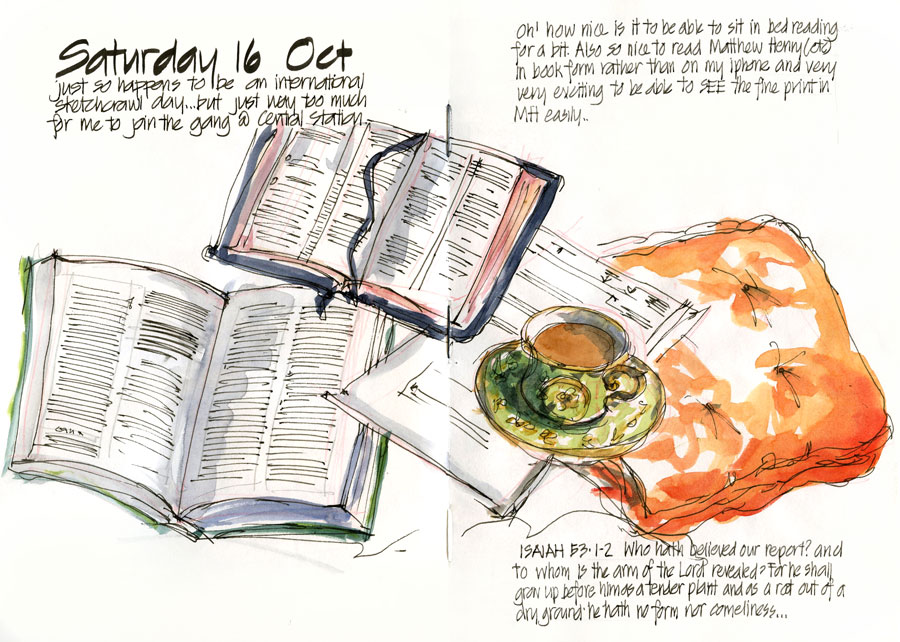 Saturday 16 Oct
just so happens to be an international
sketchcrawl day...but just way too much
for me to join the gang @ Central Station.
Oh! how nice is it to be able to sit in bed reading
for a bit. Also so nice to read Matthew Henry (etc)
in book form rather than on my iphone and very
very exciting to be able to SEE the fine print in
MH easily..
ISAIAH 53·1-2 Who hath believed our report? and
to whom is the arm of the Lord revealed? For he shall
grow up before him as a tender plant and as a root out of a
dry ground: he hath no form nor comeliness...